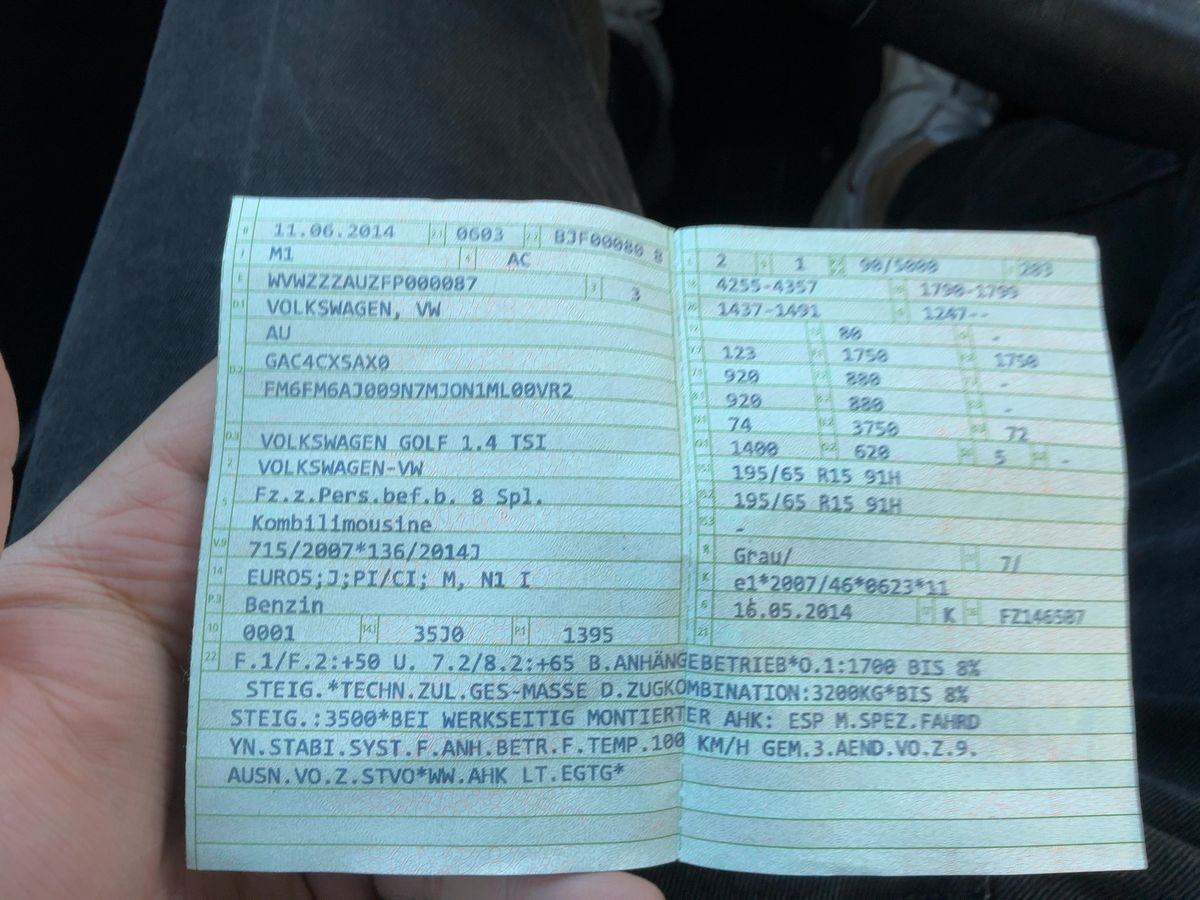 B 11.06.2014 2.1 0603 2.2 BJF00080 8
J M1 4 AC
E WVWZZZAUZFP000087 3 3
D.1 VOLKSWAGEN, VW
AU
D.2 GAC4CXSAX0
FM6FM6AJ009N7MJON1ML00VR2
D.3 VOLKSWAGEN GOLF 1.4 TSI
2 VOLKSWAGEN-VW
5 Fz.z.Pers.bef.b. 8 Spl.
Kombilimousine
V.9 715/2007*136/2014J
14 EURO5;J;PI/CI; M, N1 I
P.3 Benzin
10 0001 14.1 35J0 P.1 1395
L 2 9 1 90/5000 203
18 4255-4357 19 1790-1799
20 1437-1491 1247--
80 -
V.7 123 1750 1750
7.1 920 7.2 880 -
8.1 920 8.2 880 -
U.1 74 U.2 3750 U.3 72
O.1 1400 O.2 620 5 -
15.1 195/65 R15 91H
15.2 195/65 R15 91H
15.3 -
R Grau/ 7/
K e1*2007/46*0623*11
6 16.05.2014 17 K 16 FZ146587
21
22 F.1/F.2:+50 U. 7.2/8.2:+65 B.ANHÄNGEBETRIEB*O.1:1700 BIS 8%
STEIG.*TECHN.ZUL.GES-MASSE D.ZUGKOMBINATION:3200KG*BIS 8%
STEIG.:3500*BEI WERKSEITIG MONTIERTER AHK: ESP M.SPEZ.FAHRD
YN.STABI.SYST.F.ANH.BETR.F.TEMP.100 KM/H GEM.3.AEND.VO.Z.9.
AUSN.VO.Z.STVO*WW.AHK LT.EGTG*